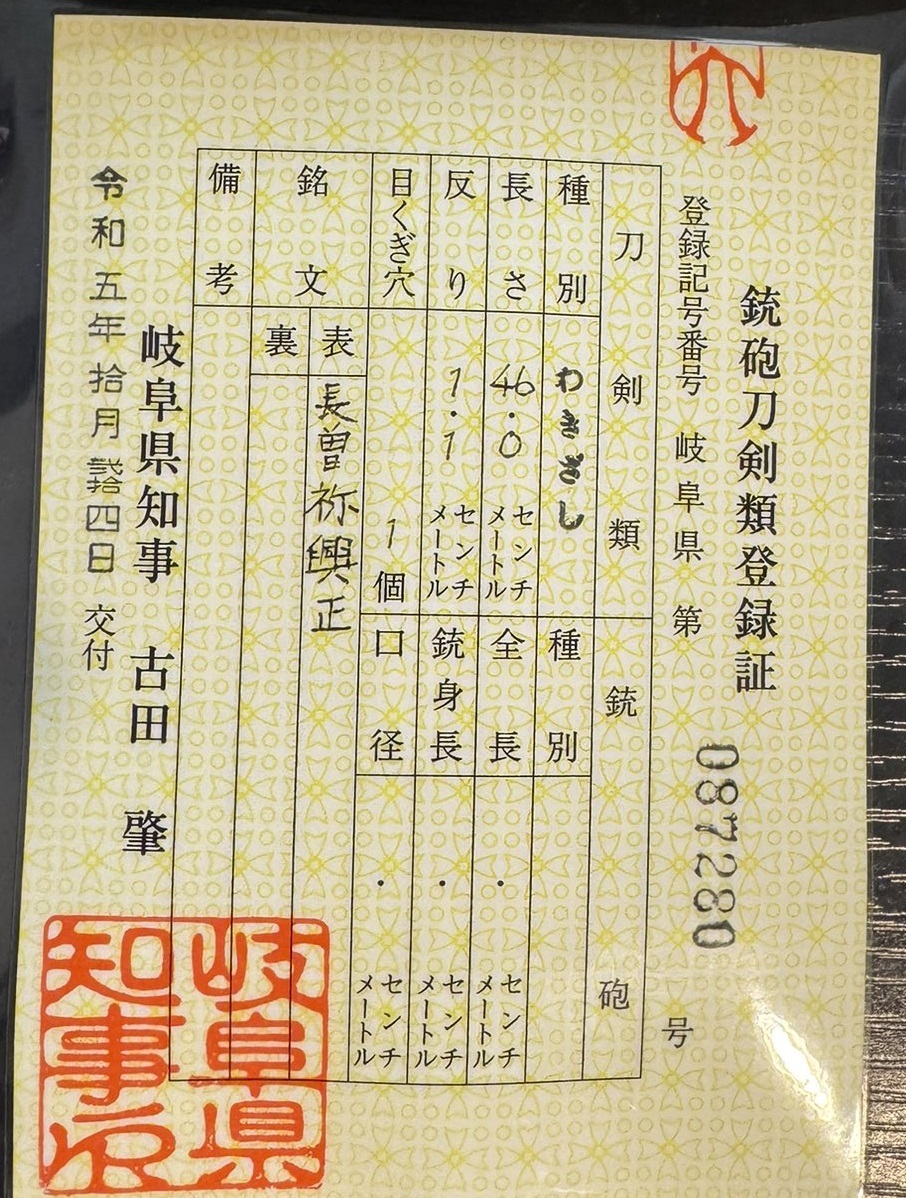 銃砲刀剣類登録証
登録記号番号 岐阜県 第 087280 号
刀剣類
種別 わきざし
長さ 46.0 センチメートル
反り 1.1 センチメートル
目くぎ穴 1個
銘文
表 長曽祢興正
裏
備考
銃砲
種別
全長 ・ センチメートル
銃身長 ・ センチメートル
口径 ・ センチメートル
岐阜県知事 古田 肇
令和五年拾月弐拾四日 交付
岐阜県
知事印